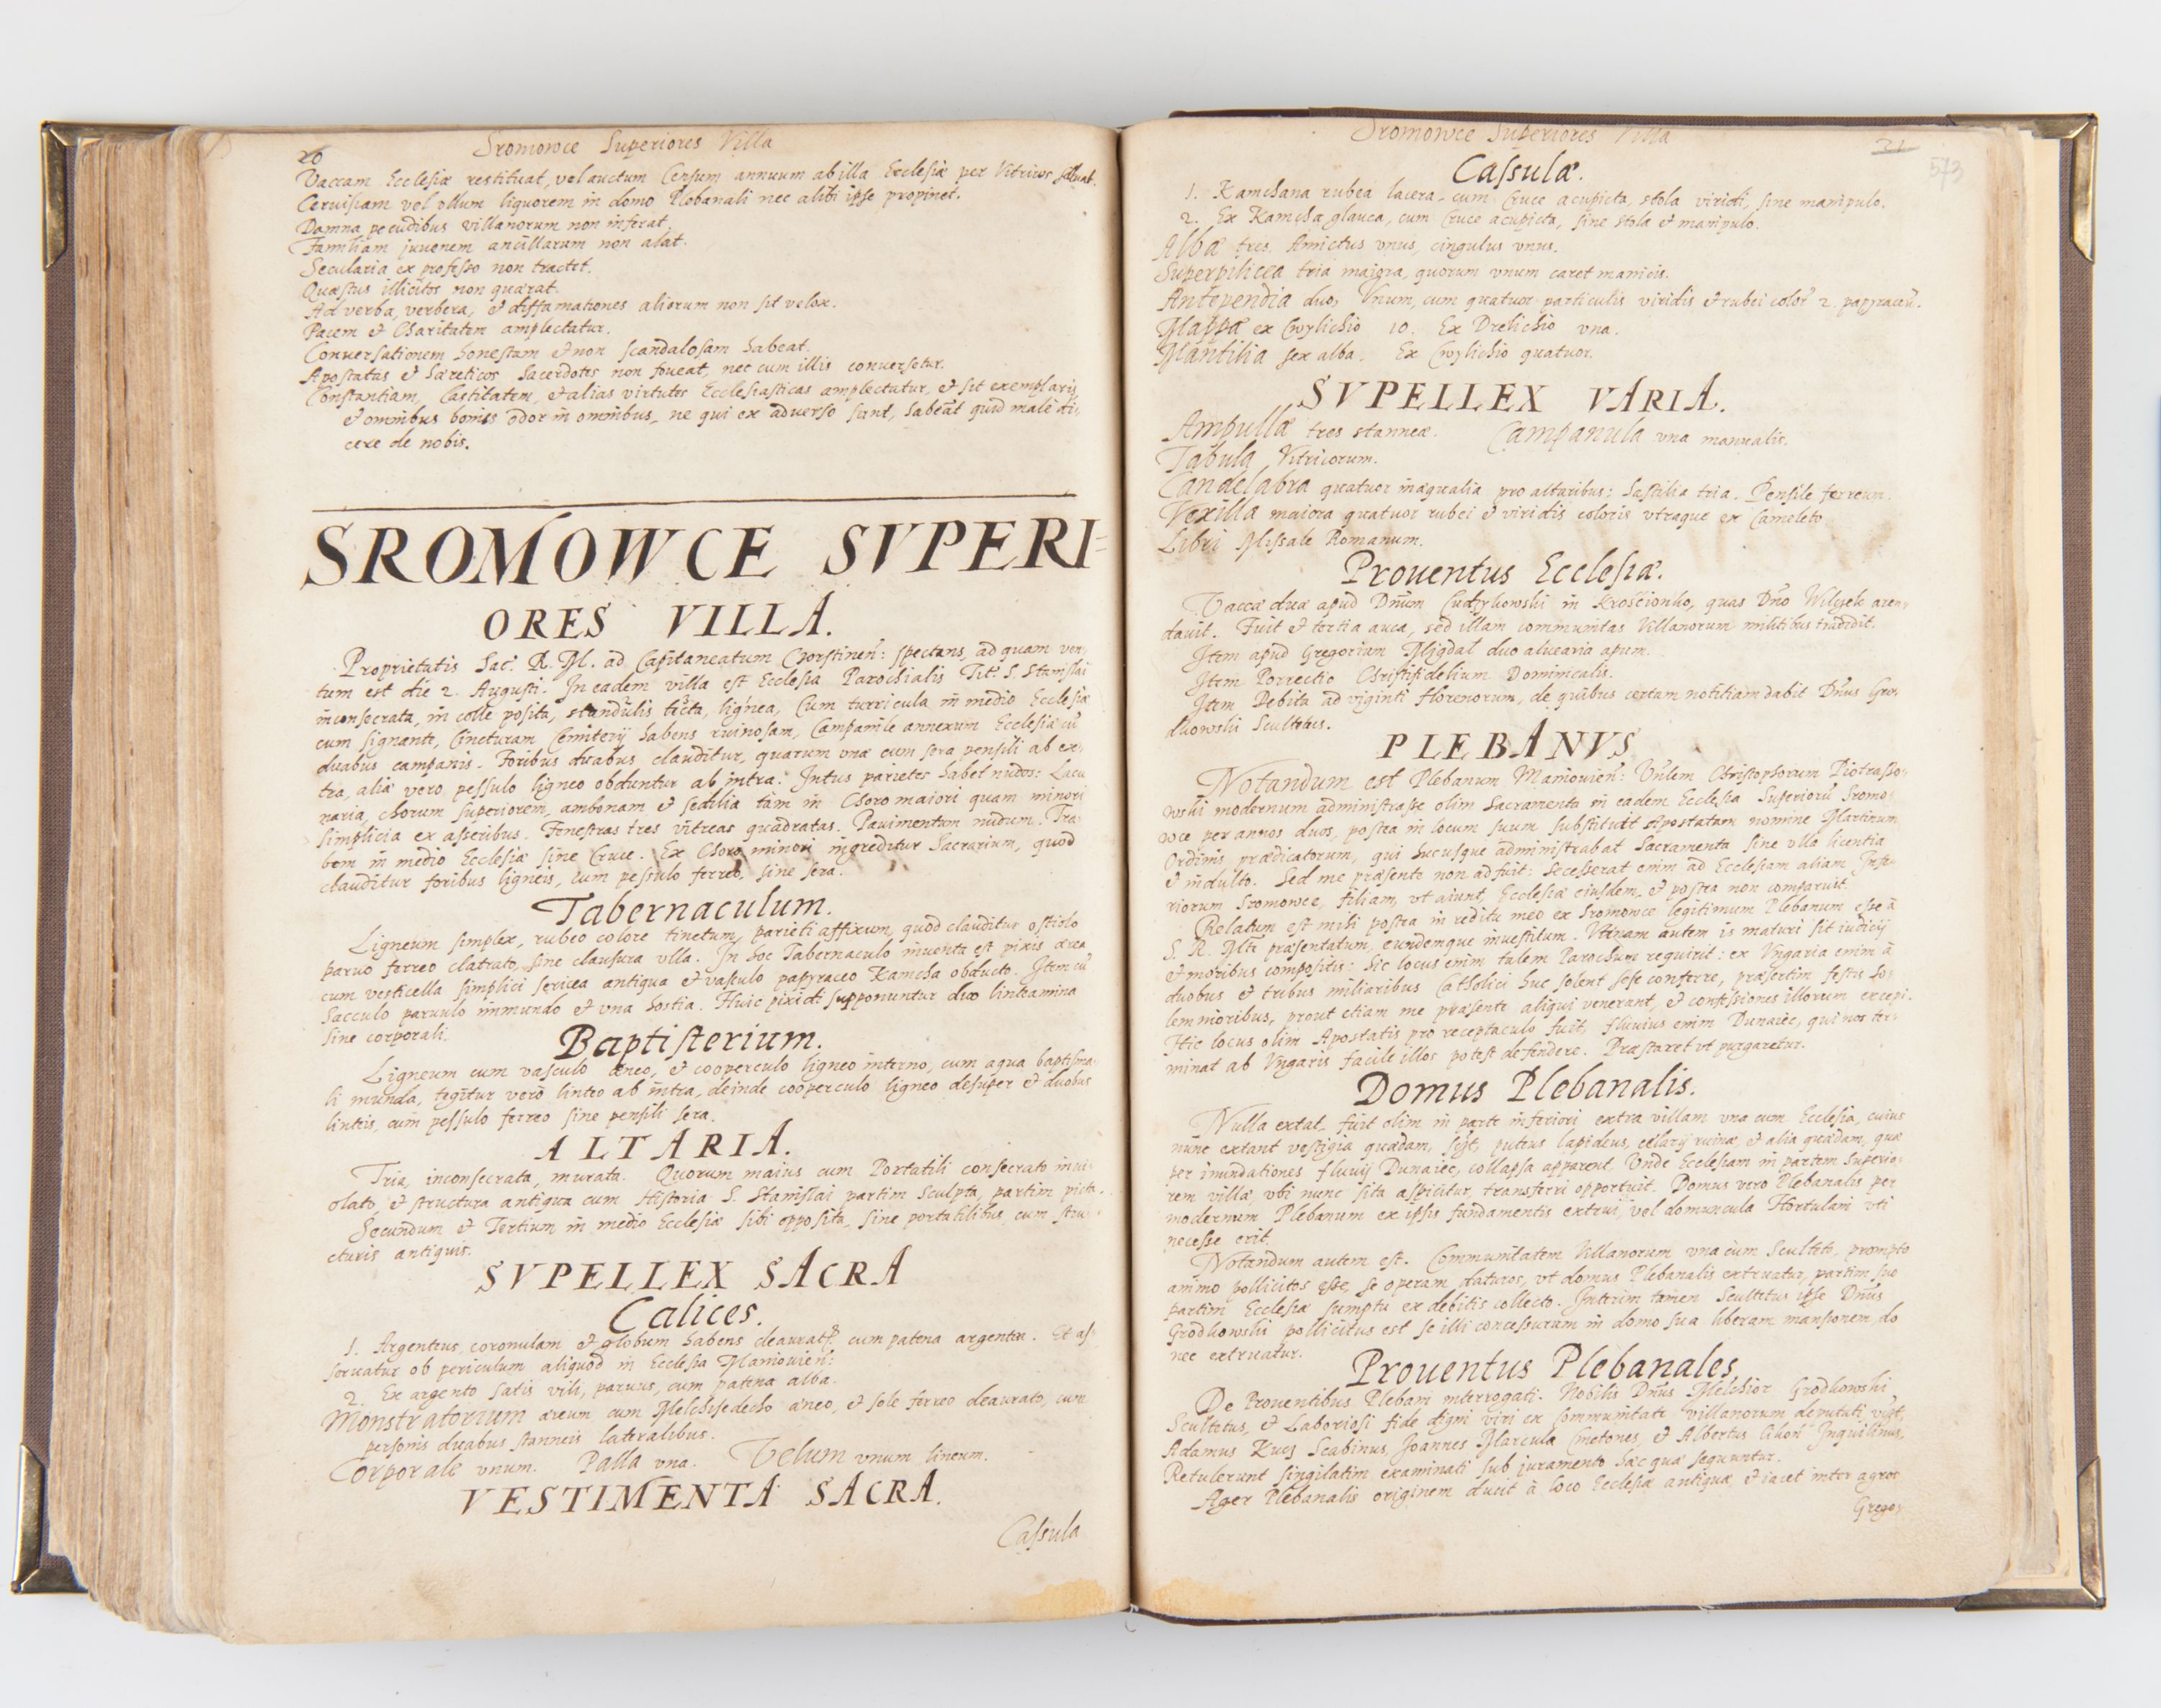 20
Sromowce Superiores Villa
Vaccam Ecclesiæ restituat, vel auctum Censum annuum ab illa Ecclesiæ per Vitricos
Ceruisiam vel vllum liquorem in domo Plebanali nec alibi ipse propinet.
Damna pecudibus villanorum non inferat.
Familiam juuenem ancillarum non alat.
Secularia ex professo non tractet.
Quæstus illicitos non quærat.
Ad verba, verbera, et diffamationes aliorum non sit velox.
Pacem et Charitatem amplectatur.
Conuersationem honestam et non scandalosam habeat.
Apostatas et hæreticos Sacerdotes non foueat, nec cum illis conuersetur.
Constantiam, Castitatem, et alias virtutes Ecclesiasticas amplectatur, et sit exemplaris,
et omnibus bonus odor in omnibus, ne qui ex aduerso sunt, habeāt quid male di-
cere de nobis.
SROMOWCE SVPERI=
ORES VILLA.
Proprietatis Sac. R. M. ad Capitaneatum Czorstinen: spectans, ad quam ven-
tum est die 2. Augusti. In eadem villa est Ecclesia Parochialis Tit. S. Stanislai
inconsecrata, in colle posita, scandulis tecta, lignea, Cum turricula in medio Ecclesiæ
cum signante, Cincturam Cemiterij habens ruinosam, Campanile annexum Ecclesiæ cū
duabus campanis. Foribus duabus clauditur, quarum vna cum sera pensili ab ex-
tra, alia vero pessulo ligneo obduntur ab intra. Intus parietes habet nudos: Lacu
naria, chorum superiorem, ambonam et sedilia tàm in Choro maiori quam minori
simplicia ex asseribus. Fenestras tres vitreas quadratas. Pauimentum nudum. Tra-
bem in medio Ecclesiæ sine Cruce. Ex Choro minori ingreditur Sacrarium, quod
clauditur foribus ligneis, cum pessulo ferreo, sine sera.
Tabernaculum.
Ligneum simplex, rubeo colore tinctum, parieti affixum, quod clauditur ostiolo
paruo ferreo clatrato, sine clausura vlla. In hoc Tabernaculo inuenta est pixis ærea
cum vesticella simplici sericea antiqua et vasculo papyraceo Kamcha obducto. Item cū
sacculo paruulo immundo et vna hostia. Huic pixidi supponuntur duo linteamina
sine corporali.
Baptisterium.
Ligneum cum vasculo æneo, et cooperculo ligneo interno, cum aqua baptisma-
li munda, tegitur verò linteo ab intra, deinde cooperculo ligneo desuper et duobus
linteis, cum pessulo ferreo sine pensili sera.
ALTARIA.
Tria, inconsecrata, murata. Quorum maius cum Portatili consecrato inui-
olato, et structura antiqua cum Historia S. Stanislai partim Sculpta, partim picta.
Secundum et Tertium in medio Ecclesiæ sibi opposita, sine portatilibus cum stru-
cturis antiquis.
SVPELLEX SACRA
Calices.
1. Argenteus, coronulam et globum habens deaurat cum patena argentea. Et as-
seruatur ob periculum aliquod in Ecclesia Maniouien:
2. Ex argento satis vili, paruus, cum patena alba.
Monstratorium æreum cum Melchisedecho æneo, et sole ferreo deaurato, cum
personis duabus stanneis lateralibus.
Corporale vnum. Palla vna. Velum vnum lineum.
VESTIMENTA SACRA.
Casula
Sromowce Superiores Villa
21
573
Casulæ.
1. Kamchana rubea lacera, cum Cruce acupicta, stola viridi, sine manipulo.
2. Ex Kamcha glauca, cum Cruce acupicta, sine stola et manipulo.
Albæ tres. Amictus vnus, cingulus vnus.
Superpilicea tria maiora, quorum vnum caret manicis.
Antependia duo, Vnum, cum quatuor particulis viridis et rubei color 2. papyraceū.
Mappæ ex Cwylichio 10. Ex Drelichio vna.
Mantilia sex alba. Ex Cwylichio quatuor.
SVPELLEX VARIA.
Ampullæ tres stanneæ. Campanula vna manualis.
Tabula Vitricorum.
Candelabra quatuor inæqualia pro altaribus: hastilia tria. Pensile ferreum.
Vexilla maiora quatuor rubei et viridis coloris vtraque ex Cameleto
Libri Missale Romanum.
Prouentus Ecclesiæ.
Vaccæ duæ apud Dnūm in Krościenko, quas Dno Wilczek aren-
dauit. Fuit et tertia auca, sed illam communitas Villanorum militibus tradidit.
Item apud Gregorium Migdal duo aluearia apum.
Item Porrectio Christifidelium Dominicalis.
Item Debita ad viginti florenorum, de quibus certam notitiam dabit Dnūs Gro-
dkowski Scultetus.
PLEBANVS
Notandum est Plebanum Maniouien: Christophorum Piotrasso-
wski modernum administrasse olim Sacramenta in eadem Ecclesia Superiorū Sromo-
wce per annos duos, postea in locum suum substituit Apostatam nomine Martinum
Ordinis prædicatorum, qui hucusque administrabat Sacramenta sine vlla licentia
et indulto. Sed me præsente non adfuit: secesserat enim ad Ecclesiam aliam Infe-
riorum Sromowce, filiam, vt aiunt, Ecclesiæ eiusdem, et postea non comparuit.
Relatum est mihi postea in reditu meo ex Sromowce legitimum Plebanum esse à
S. R. Mte præsentatum, eundemque inuestitum. Vtinam autem is maturi sit iudicij
et moribus compositis: hic locus enim talem Parochum requirit: ex Vngaria enim à
duobus et tribus miliaribus Catholici huc solent sese conferre, præsertim festis so-
lemnioribus, prout etiam me præsente aliqui venerant, et confessiones illorum excepi.
Hic locus olim Apostatis pro receptaculo fuit, fluuius enim Dunaiec, qui nos ter-
minat ab Vngaris facile illos potest defendere. Præstaret vt purgaretur.
Domus Plebanalis.
Nulla extat, fuit olim in parte inferiori extra villam vna cum Ecclesia, cuius
nunc extant vestigia quædam, puteus lapideus, celarij ruinæ et alia quædam, quæ
per inundationes fluuij Dunaiec, collapsa apparent. Vnde Ecclesiam in partem Superio-
rem villæ vbi nunc sita aspicitur, transferri opportuit. Domus vero Plebanalis per
modernum Plebanum ex ipsis fundamentis extrui, vel domuncula Hortulani vti
necesse erit.
Notandum autem est. Communitatem Villanorum vna cum Sculteto, prompto
animo pollicitos esse, se operam daturos, vt domus Plebanalis extruatur, partim suo
partim Ecclesiæ sumptu ex debitis collecto. Interim tamen Scultetus ipse Dnūs
Grodkowski pollicitus est se illi concessurum in domo sua liberam mansionem, do
nec extruatur.
Prouentus Plebanales.
De Prouentibus Plebani interrogati. Nobilis Dnūs Melchior Grodkowski
Scultetus, et Laboriosi fide digni viri ex communitate villanorum deputati,
Adamus Scabinus, Joannes Marcula Cmetones, et Albertus Inquilinus,
Retulerunt singilatim examinati sub juramento hæc quæ sequuntur.
Ager Plebanalis originem ducit à loco Ecclesiæ antiquæ et iacet inter agros
Grego-